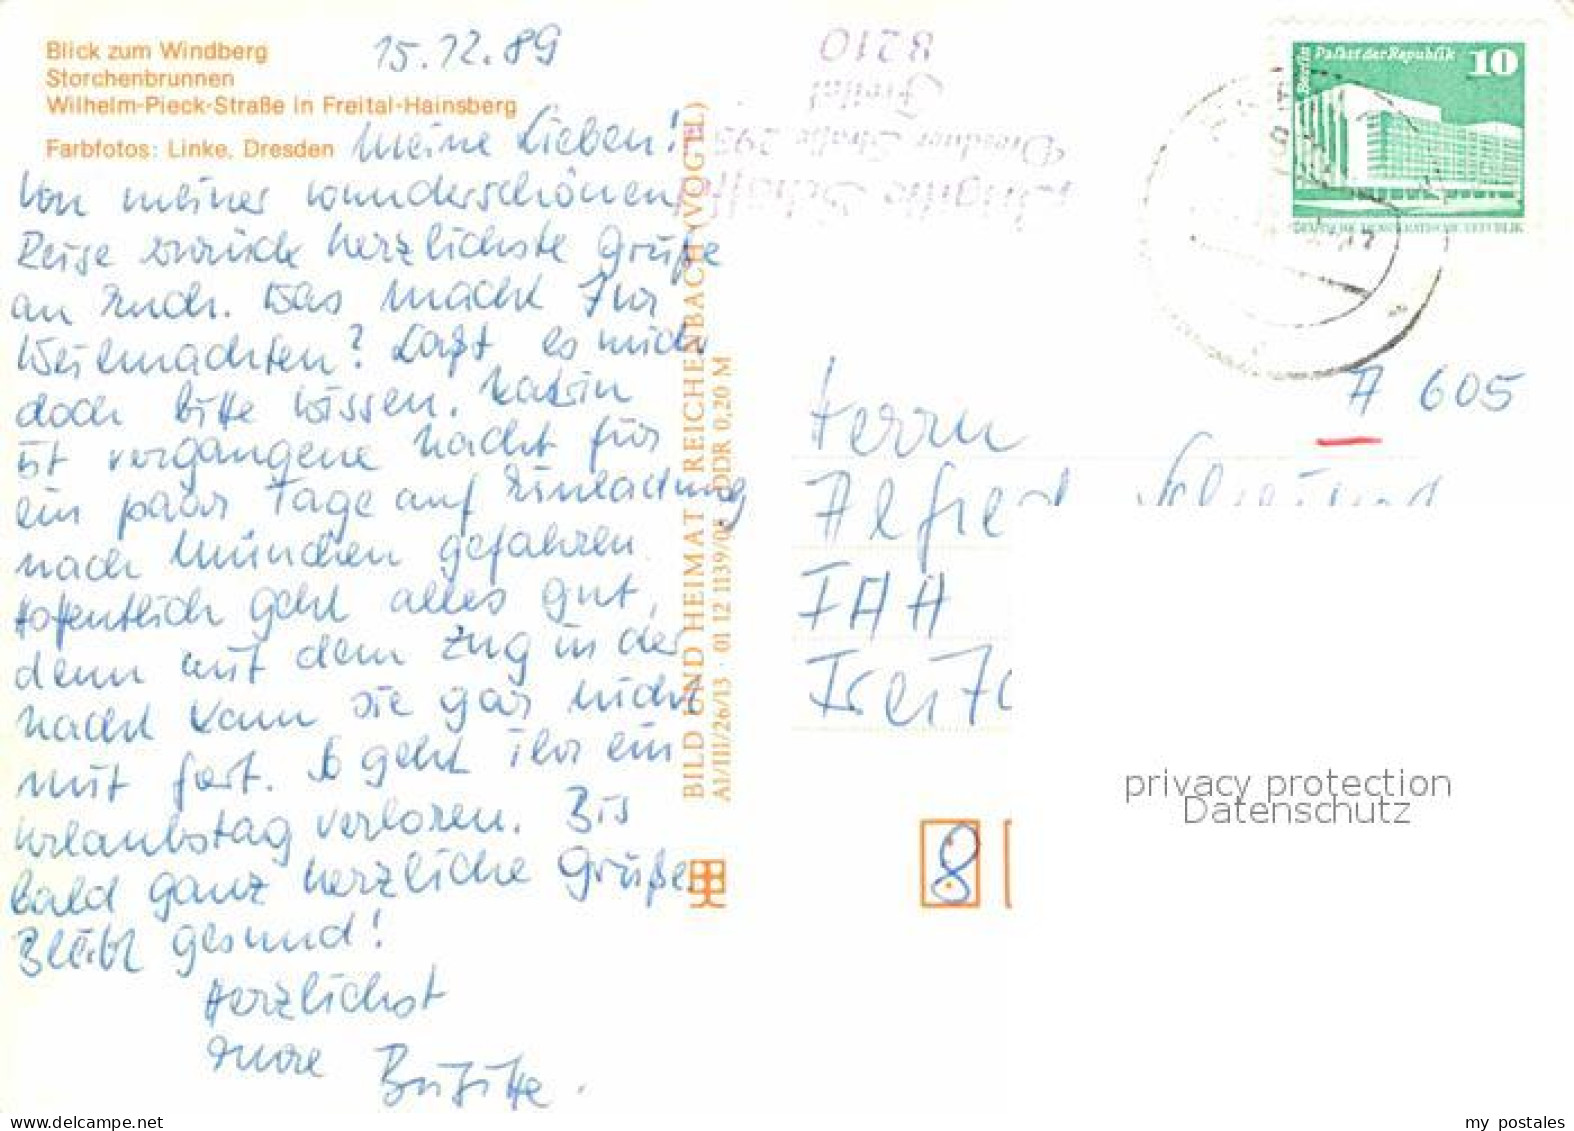 Blick zum Windberg
Storchenbrunnen
Wilhelm-Pieck-Straße in Freital-Hainsberg
Farbfotos: Linke, Dresden
15.12.89
Meine Lieben!
Von meiner wunderschönen
Reise zurück herzlichste Grüße
an Euch. Was macht Ihr
Weihnachten? Laßt es mich
doch bitte wissen. Katrin
ist vergangene Nacht für
ein paar Tage auf Einladung
nach München gefahren.
Hoffentlich geht alles gut,
denn mit dem Zug in der
Nacht kam sie gar nicht
mit fort. So geht ihr ein
Urlaubstag verloren. Bis
bald ganz herzliche Grüße.
Bleibt gesund!
Herzlichst
Eure Brigitte.
BILD UND HEIMAT REICHENBACH (VOGTL)
A1/III/26/13 · 01 12 1139/0 DDR 0,20 M
Dresdner Straße 293
Freital
8210
Berlin Palast der Republik 10
DEUTSCHE DEMOKRATISCHE REPUBLIK
A 605
Herrn
Alfred
8
privacy protection
Datenschutz
my postales